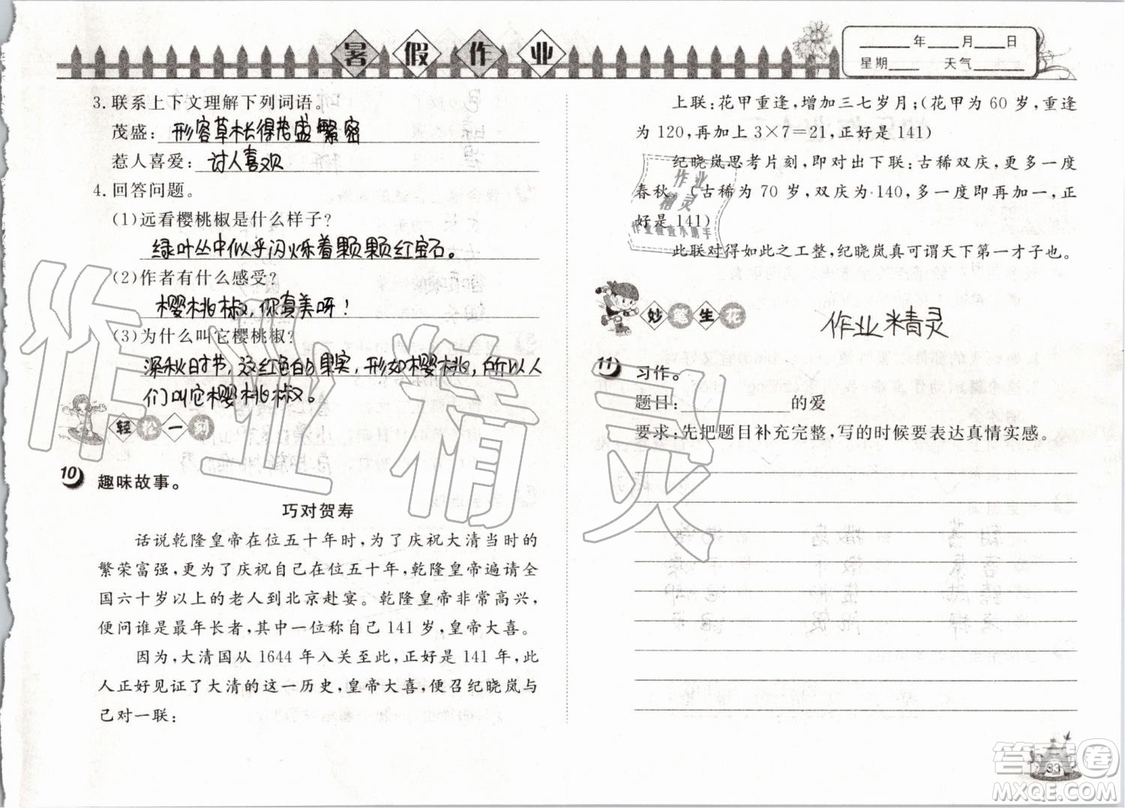 暑假作业
____年____月____日
星期____ 天气____
3.联系上下文理解下列词语。
茂盛:形容草长得茂盛繁密
惹人喜爱:讨人喜欢
4.回答问题。
(1)远看樱桃椒是什么样子?
绿叶丛中似乎闪烁着颗颗红宝石。
(2)作者有什么感受?
樱桃椒,你真美呀!
(3)为什么叫它樱桃椒?
深秋时节,这红色的果实,形如樱桃,所以人
们叫它樱桃椒。
轻松一刻
10 趣味故事。
巧对贺寿
话说乾隆皇帝在位五十年时,为了庆祝大清当时的
繁荣富强,更为了庆祝自己在位五十年,乾隆皇帝邀请全
国六十岁以上的老人到北京赴宴。乾隆皇帝非常高兴,
便问谁是最年长者,其中一位称自己 141 岁,皇帝大喜。
因为,大清国从 1644 年入关至此,正好是 141 年,此
人正好见证了大清的这一历史,皇帝大喜,便召纪晓岚与
己对一联:
上联:花甲重逢,增加三七岁月;(花甲为 60 岁,重逢
为 120,再加上 3×7=21,正好是 141)
纪晓岚思考片刻,即对出下联:古稀双庆,更多一度
春秋。(古稀为 70 岁,双庆为 140,多一度,正
好是 141)
此联对得如此之工整,纪晓岚真可谓天下第一才子也。
作业
精灵
作业检查小助手
妙笔生花
作业精灵
11 习作。
题目:__________的爱
要求:先把题目补充完整,写的时候要表达真情实感。
作业精灵
33
答案圈
MXQE.COM